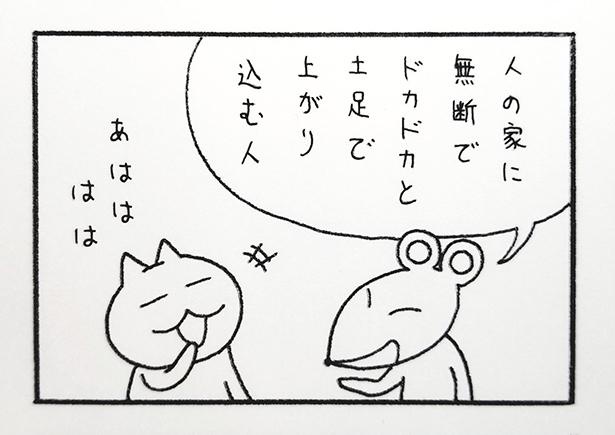 人の家に
無断で
ドカドカと
土足で
上がり
込む人
あはは
はは